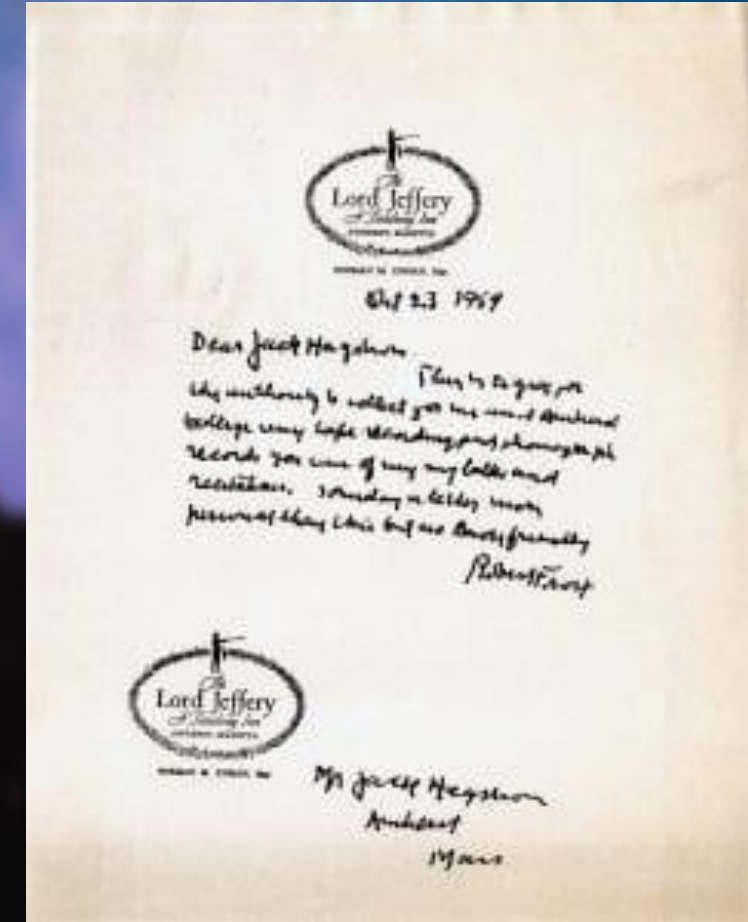 The
Lord Jeffery
A Treadway Inn
23 1959
Dear Jack Hagstrom
This is to give you
the authority to collect for me and Amherst
College any tape recording and phonograph
records you can of my talks and
recitations. Someday a letter more
personal than this but no more friendly
Robert Frost
The
Lord Jeffery
A Treadway Inn
Mr Jack Hagstrom
Amherst
Mass